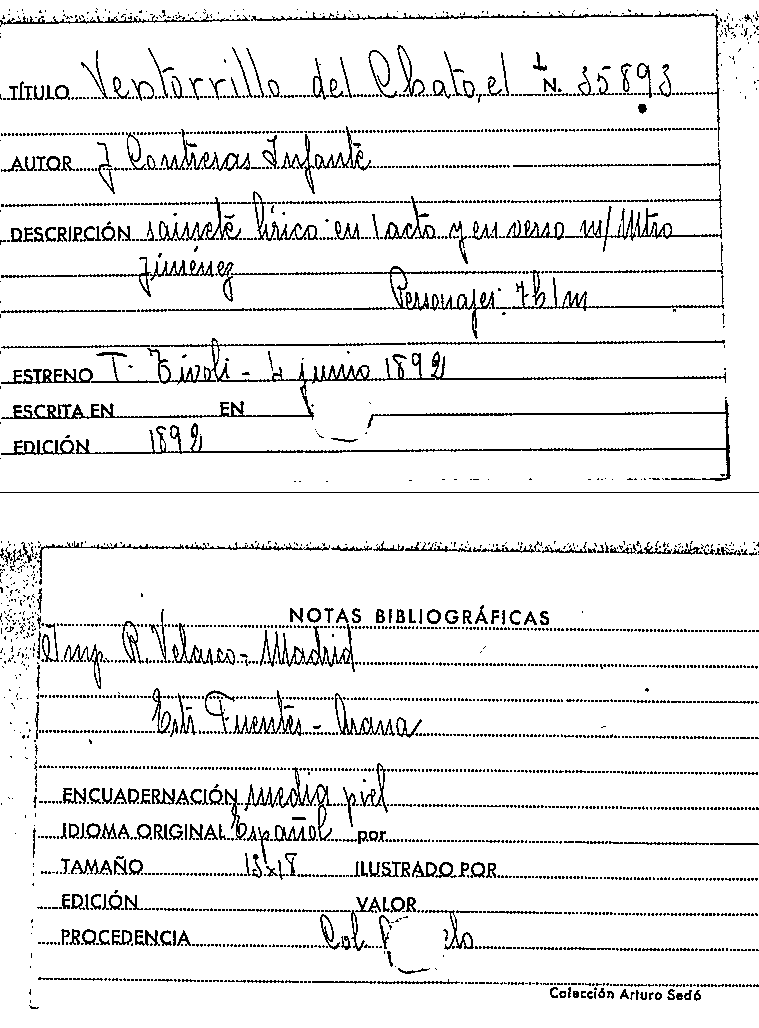 TÍTULO Ventorrillo del Chato, el N. 35893
AUTOR J Contreras Infante
DESCRIPCIÓN sainete lírico en 1 acto y en verso m/ Mtro
Jiménez
Personajes: 7h 1m
ESTRENO T. Tívoli - 4 junio 1892
ESCRITA EN EN
EDICIÓN 1892
NOTAS BIBLIOGRÁFICAS
Imp R. Velasco - Madrid
Fuentes - Arana
ENCUADERNACIÓN media piel
IDIOMA ORIGINAL Español por
TAMAÑO ILUSTRADO POR
EDICIÓN VALOR
PROCEDENCIA Col.
Colección Arturo Sedó